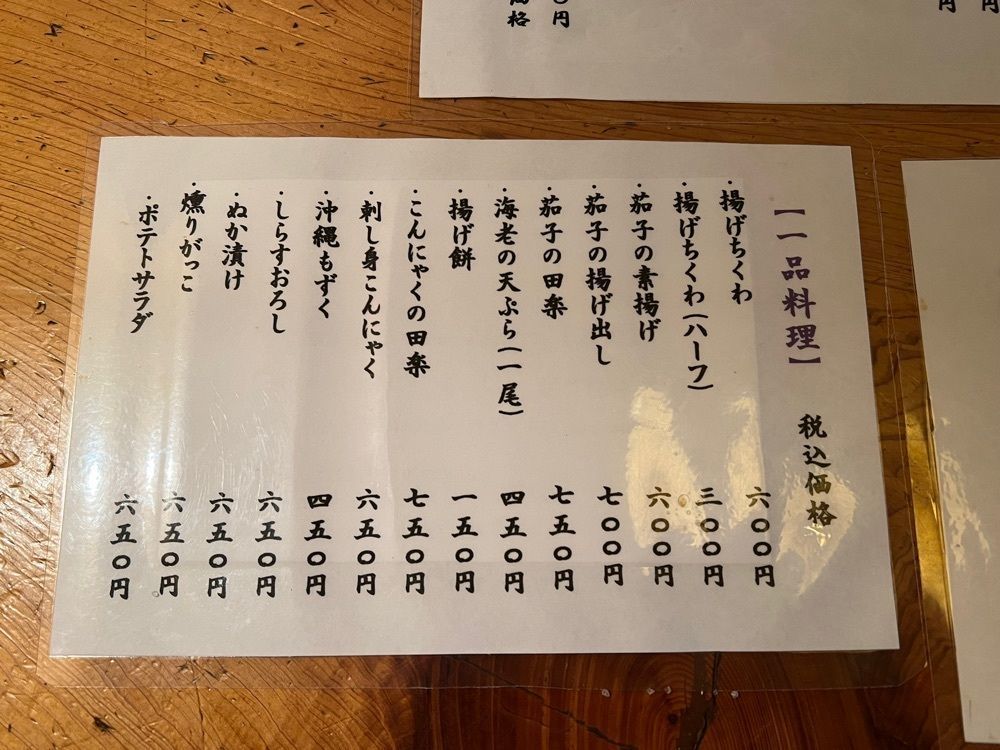 円
円
〇円
価格
【一品料理】 税込価格
・揚げちくわ 六〇〇円
・揚げちくわ(ハーフ) 三〇〇円
・茄子の素揚げ 六〇〇円
・茄子の揚げ出し 七〇〇円
・茄子の田楽 七五〇円
・海老の天ぷら(一尾) 四五〇円
・揚げ餅 一五〇円
・こんにゃくの田楽 七五〇円
・刺し身こんにゃく 六五〇円
・沖縄もずく 四五〇円
・しらすおろし 六五〇円
・ぬか漬け 六五〇円
・燻りがっこ 六五〇円
・ポテトサラダ 六五〇円